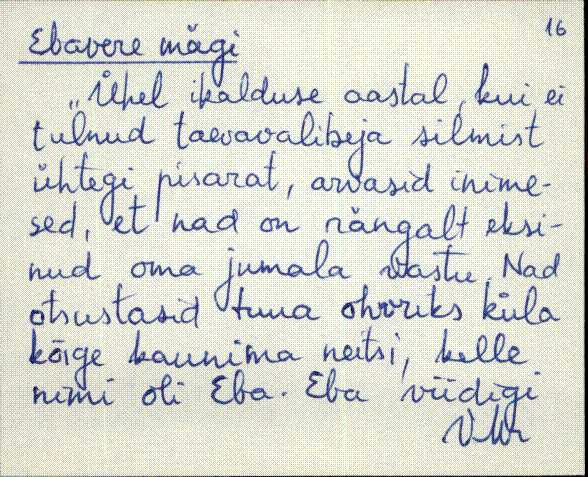 16
Ebavere mägi
„Ühel ikalduse aastal, kui ei
tulnud taevavalitseja silmist
ühtegi pisarat, arvasid inime-
sed, et nad on rängalt eksi-
nud oma jumala vastu. Nad
otsustasid tuua ohvriks küla
kõige kaunima neitsi, kelle
nimi oli Eba. Eba viidigi